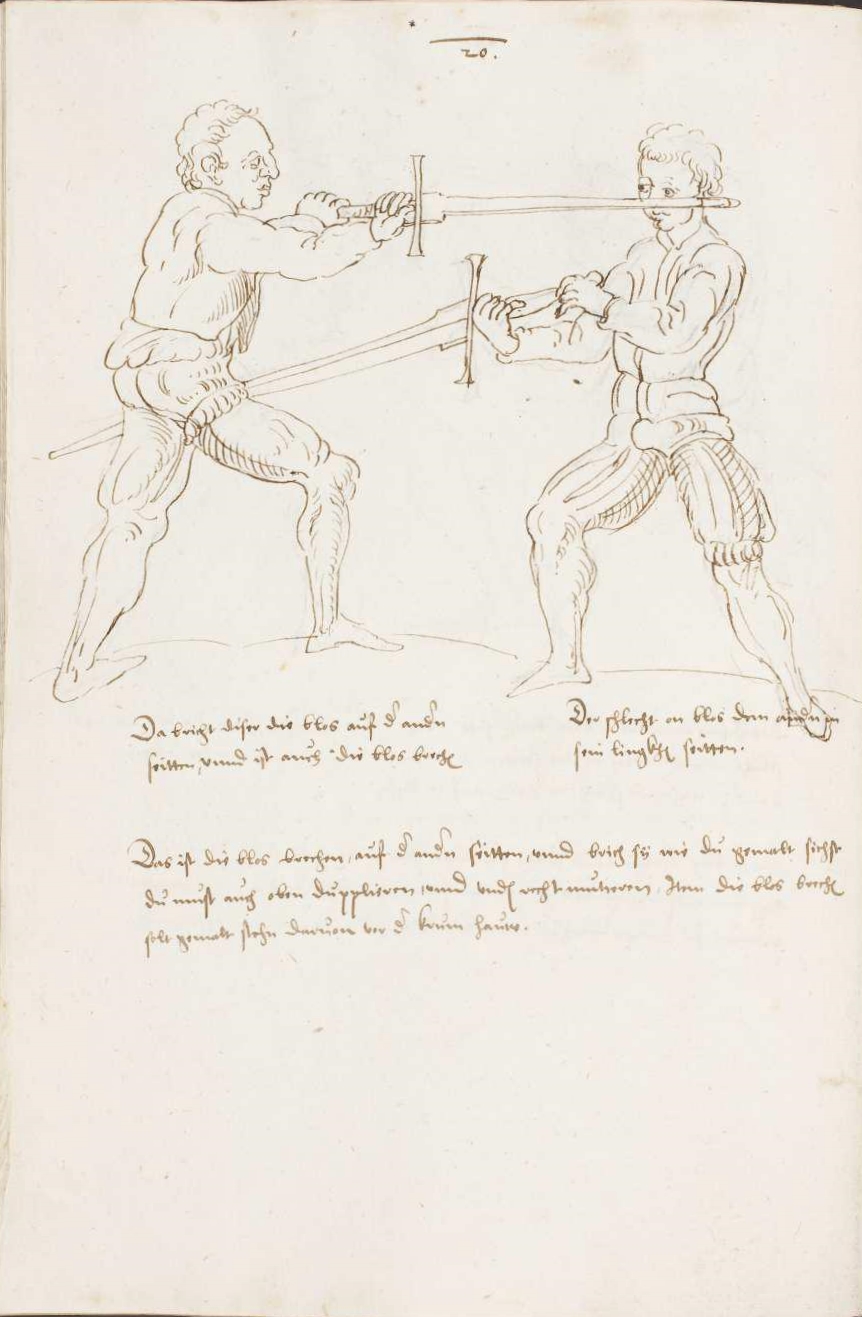 20.
Da bricht diser die blos auf d andn
seitten, vnnd ist auch die blos brechen
Der schlecht on blos dem andn zu
sein lingkhen seitten.
Das ist die blos brechen, auf d andn seitten, vnnd brich sy wie du gemalt sichst
du must auch oben dupplieren, vnnd vnden recht mutieren. Item die blos brechen
solt gemalt stehn daruon vor d krum hauw.